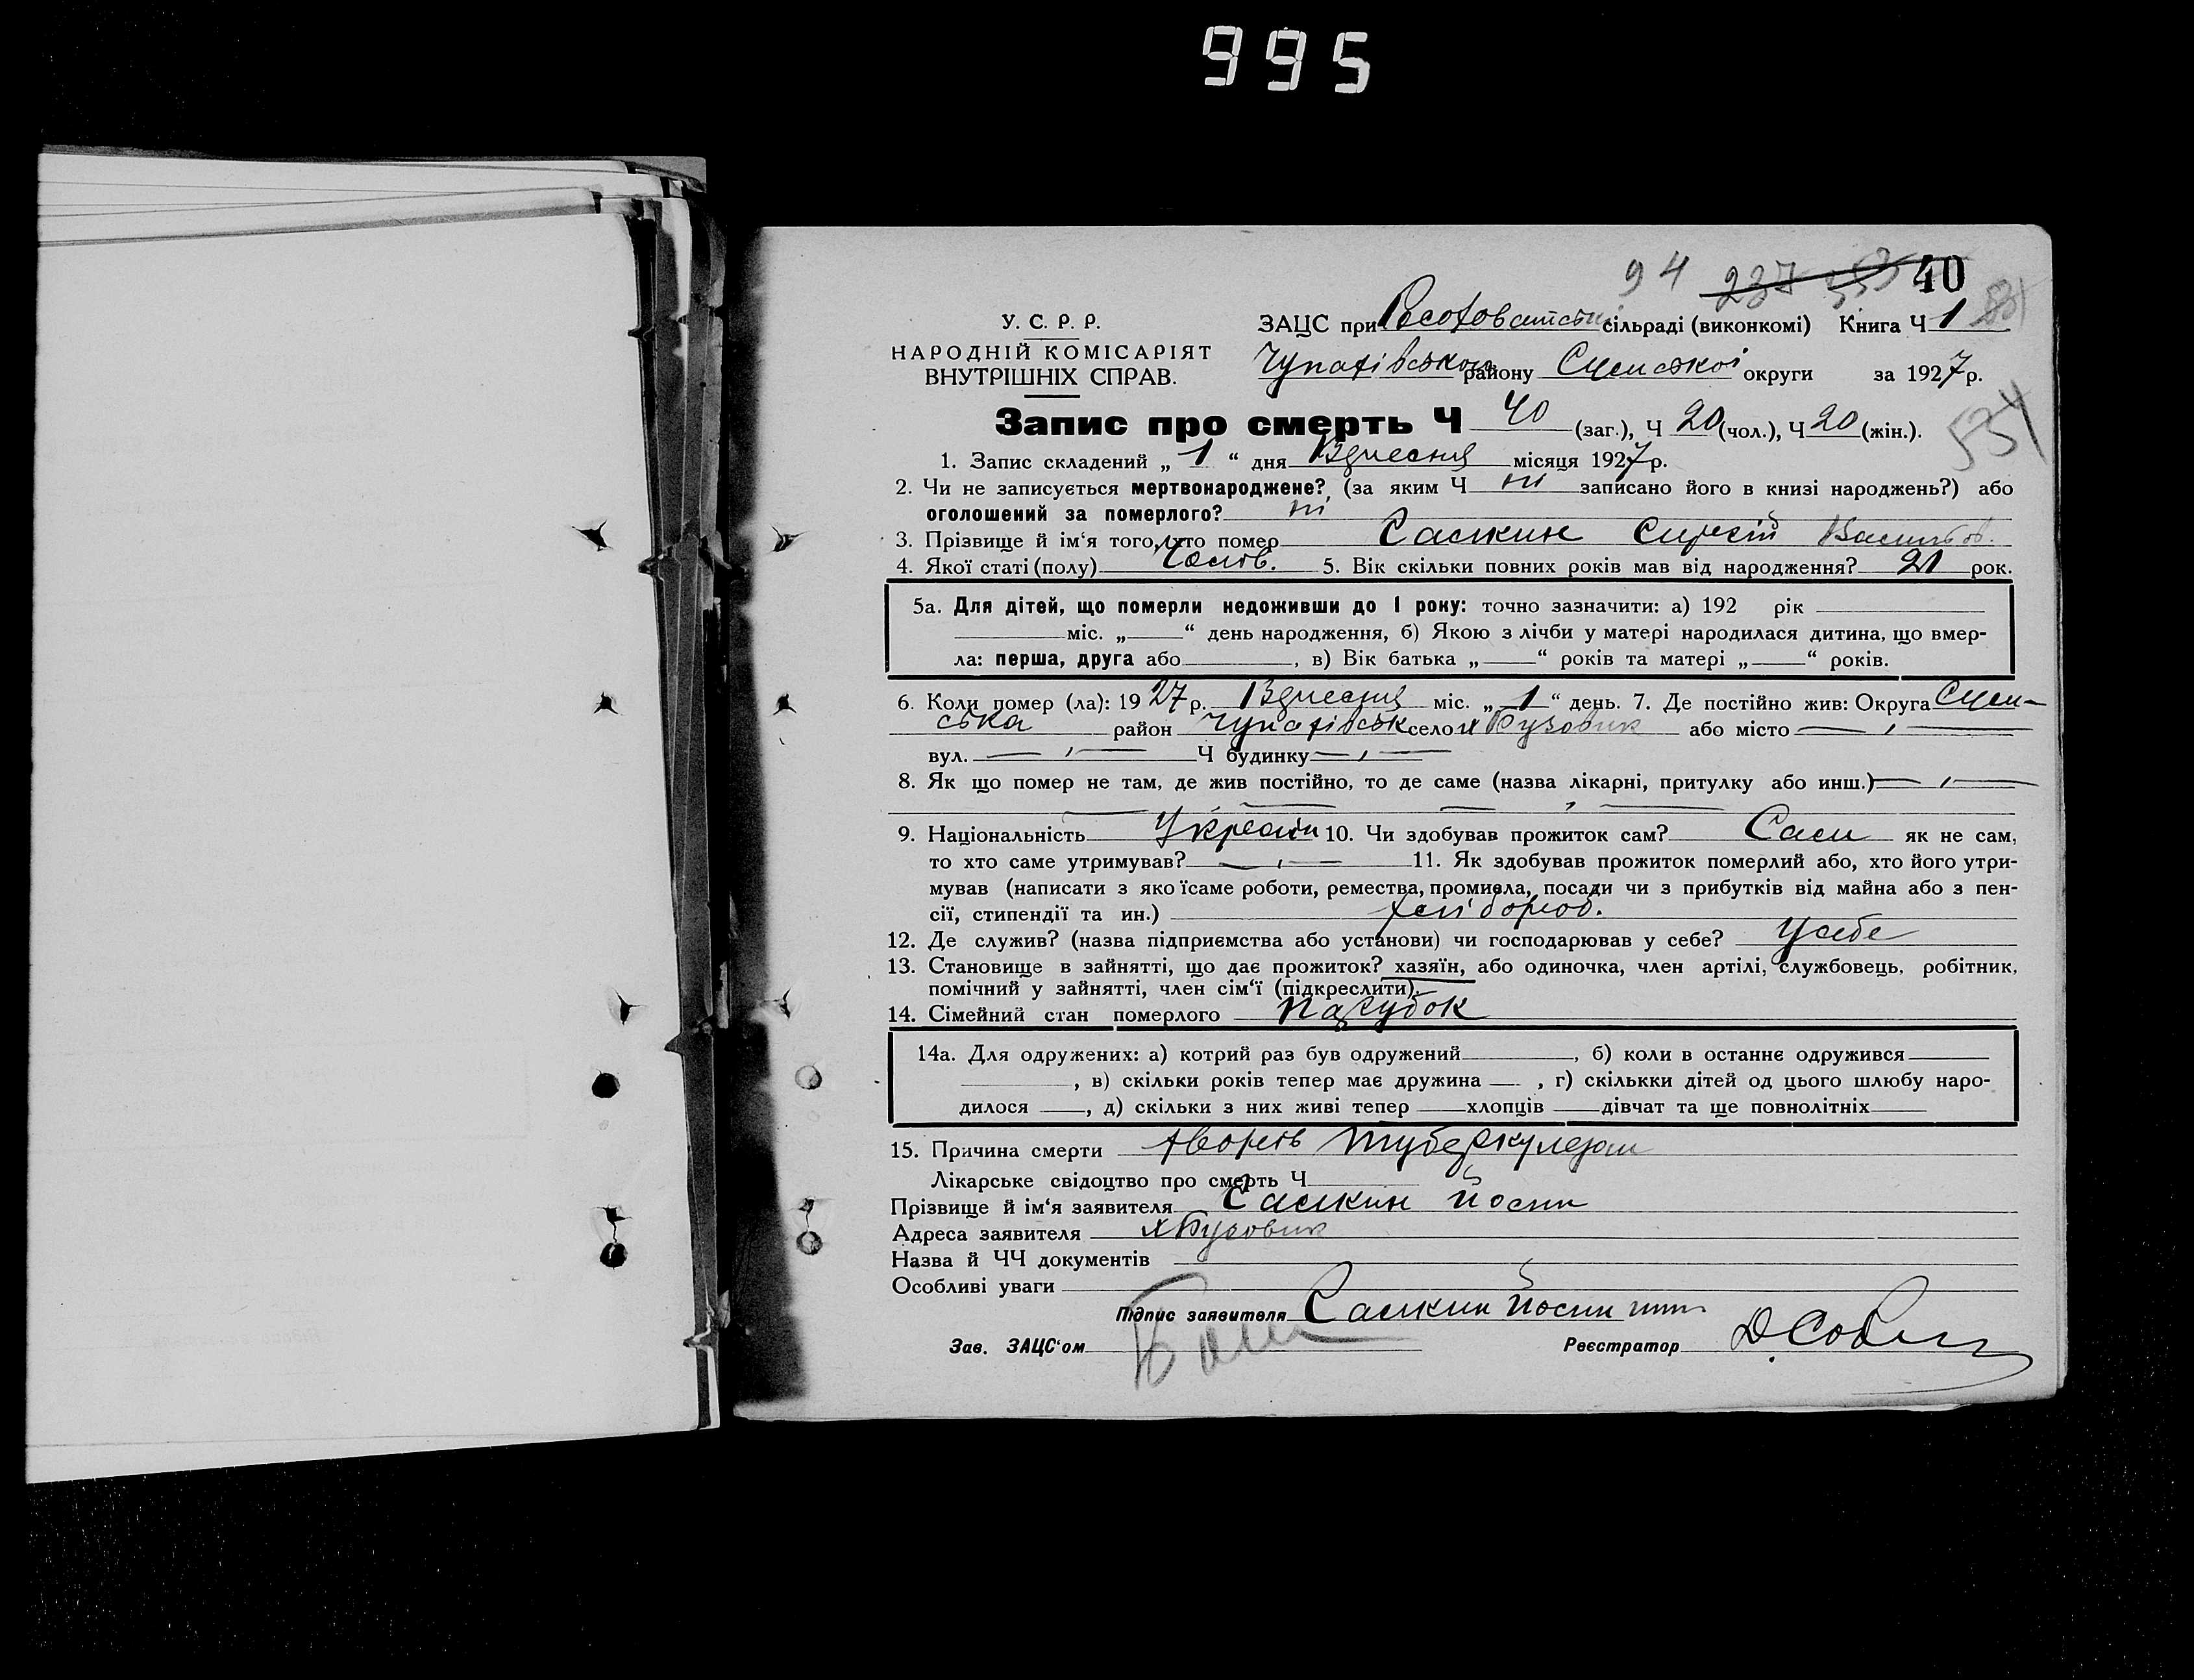 995
94 237 353 40
У. С. Р. Р.
НАРОДНІЙ КОМІСАРІЯТ
ВНУТРІШНІХ СПРАВ.
ЗАЦС при сільраді (виконкомі) Книга Ч 1
Чупахівського району Сумської округи за 1927 р.
Запис про смерть Ч 40 (заг.), Ч 20 (чол.), Ч 20 (жін.).
534
1. Запис складений „ 1 “ дня Вересня місяця 1927 р.
2. Чи не записується мертвонароджене? (за яким Ч ні записано його в книзі народжень?) або
оголошений за померлого? ні
3. Прізвище й ім‘я того, хто помер Самкин Сергій Васильов.
4. Якої статі (полу) Чолов. 5. Вік скільки повних років мав від народження? 21 рок.
5а. Для дітей, що померли недоживши до 1 року: точно зазначити: а) 192 рік
міс. „ “ день народження, б) Якою з лічби у матері народилася дитина, що вмер-
ла: перша, друга або , в) Вік батька „ “ років та матері „ “ років.
6. Коли помер (ла): 1927 р. Вересня міс. „ 1 “ день. 7. Де постійно жив: Округа Сум-
ська район Чупахівськ село х Бузовик або місто — „ —
вул. — „ — Ч будинку — „ —
8. Як що помер не там, де жив постійно, то де саме (назва лікарні, притулку або инш.) — „ —
9. Національність Україн 10. Чи здобував прожиток сам? Сам як не сам,
то хто саме утримував? — „ — 11. Як здобував прожиток померлий або, хто його утри-
мував (написати з яко їсаме роботи, ремества, промисла, посади чи з прибутків від майна або з пен-
сії, стипендії та ин.) хлібороб.
12. Де служив? (назва підприємства або установи) чи господарював у себе? У себе
13. Становище в зайнятті, що дає прожиток? хазяїн, або одиночка, член артілі, службовець, робітник,
помічний у зайнятті, член сім‘ї (підкреслити).
14. Сімейний стан померлого парубок
14а. Для одружених: а) котрий раз був одружений , б) коли в останнє одружився
, в) скільки років тепер має дружина , г) скількки дітей од цього шлюбу наро-
дилося , д) скільки з них живі тепер хлопців дівчат та ще повнолітніх
15. Причина смерти хворів туберкульозом
Лікарське свідоцтво про смерть Ч
Прізвище й ім‘я заявителя Самкин Йосип
Адреса заявителя х Бузовик
Назва й ЧЧ документів
Особливі уваги
Підпис заявителя Самкин Йосип
Зав. ЗАЦС‘ом Реєстратор